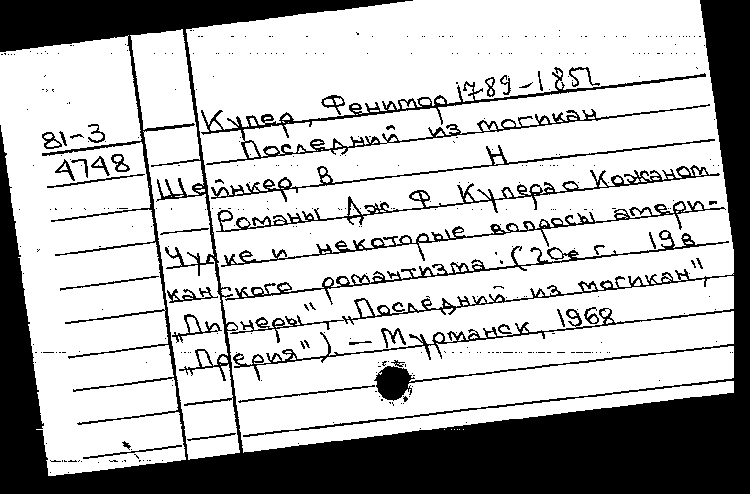 Купер, Фенимор 1789-1851
81-3
Последний из могикан
4748
Н
Шейнкер, В
Романы Дж. Ф. Купера о Кожаном
Чулке и некоторые вопросы амери-
канского романтизма: (20е г. 19в
„Пионеры", „Последний из могикан",
„Прерия"). – Мурманск, 1968